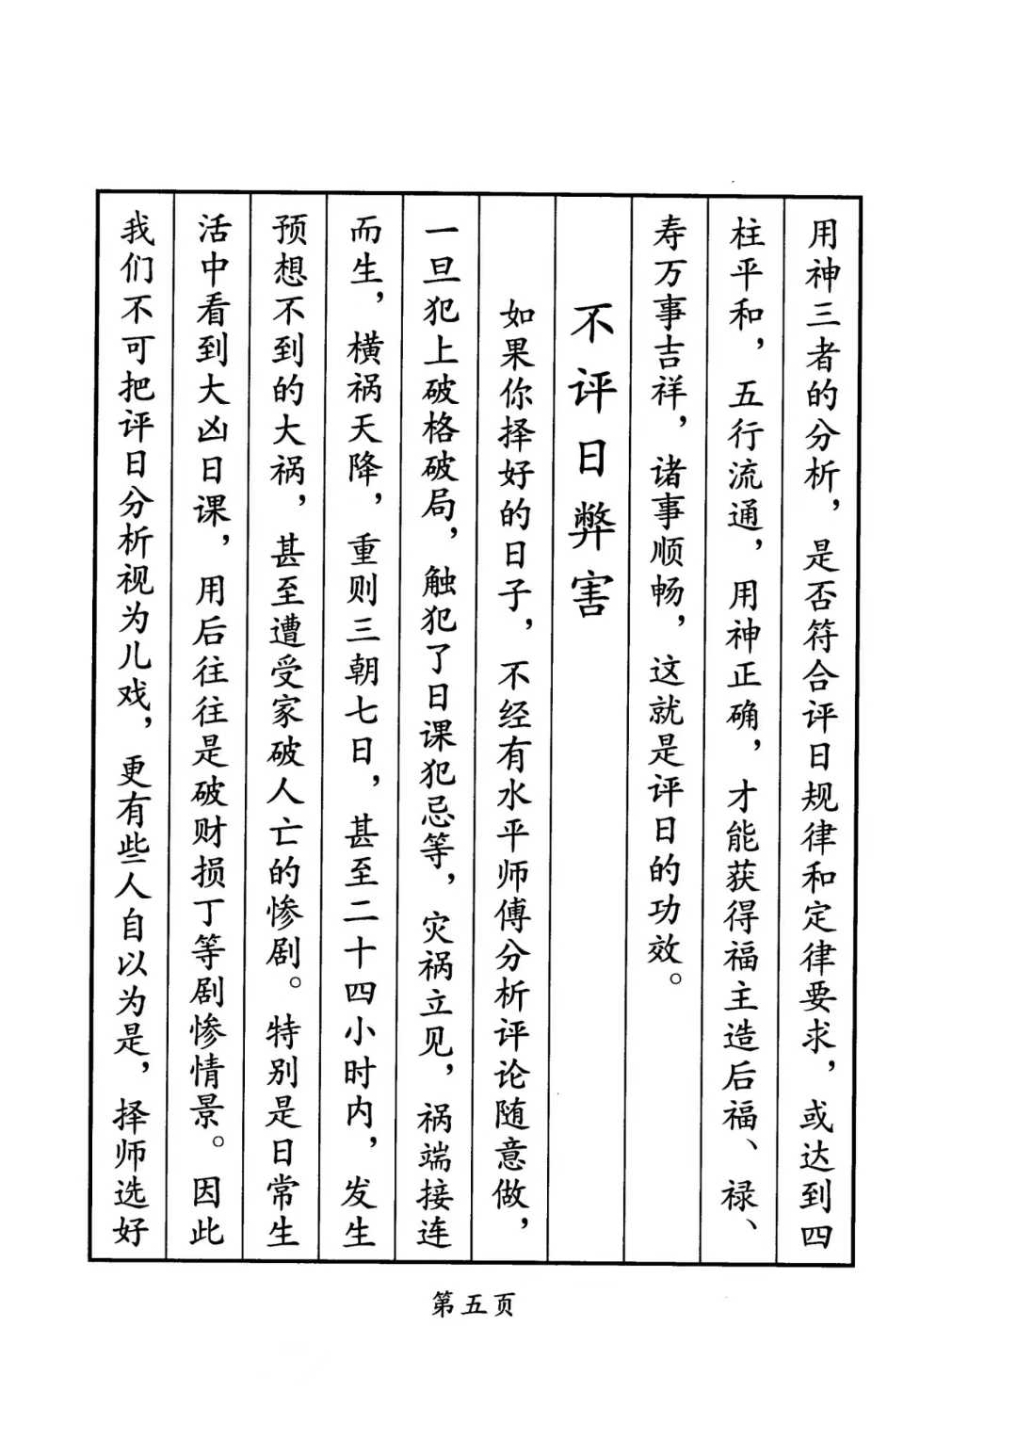 用神三者的分析，是否符合评日规律和定律要求，或达到四
柱平和，五行流通，用神正确，才能获得福主造后福、禄、
寿万事吉祥，诸事顺畅，这就是评日的功效。
不评日弊害
如果你择好的日子，不经有水平师傅分析评论随意做，
一旦犯上破格破局，触犯了日课犯忌等，灾祸立见，祸端接连
而生，横祸天降，重则三朝七日，甚至二十四小时内，发生
预想不到的大祸，甚至遭受家破人亡的惨剧。特别是日常生
活中看到大凶日课，用后往往是破财损丁等剧惨情景。因此
我们不可把评日分析视为儿戏，更有些人自以为是，择师选好
第五页